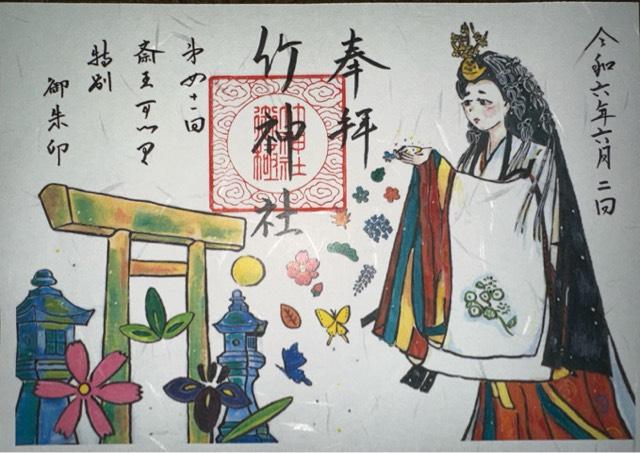 令和六年六月二日
奉拝
竹神社
斎王まつり
特別
御朱印